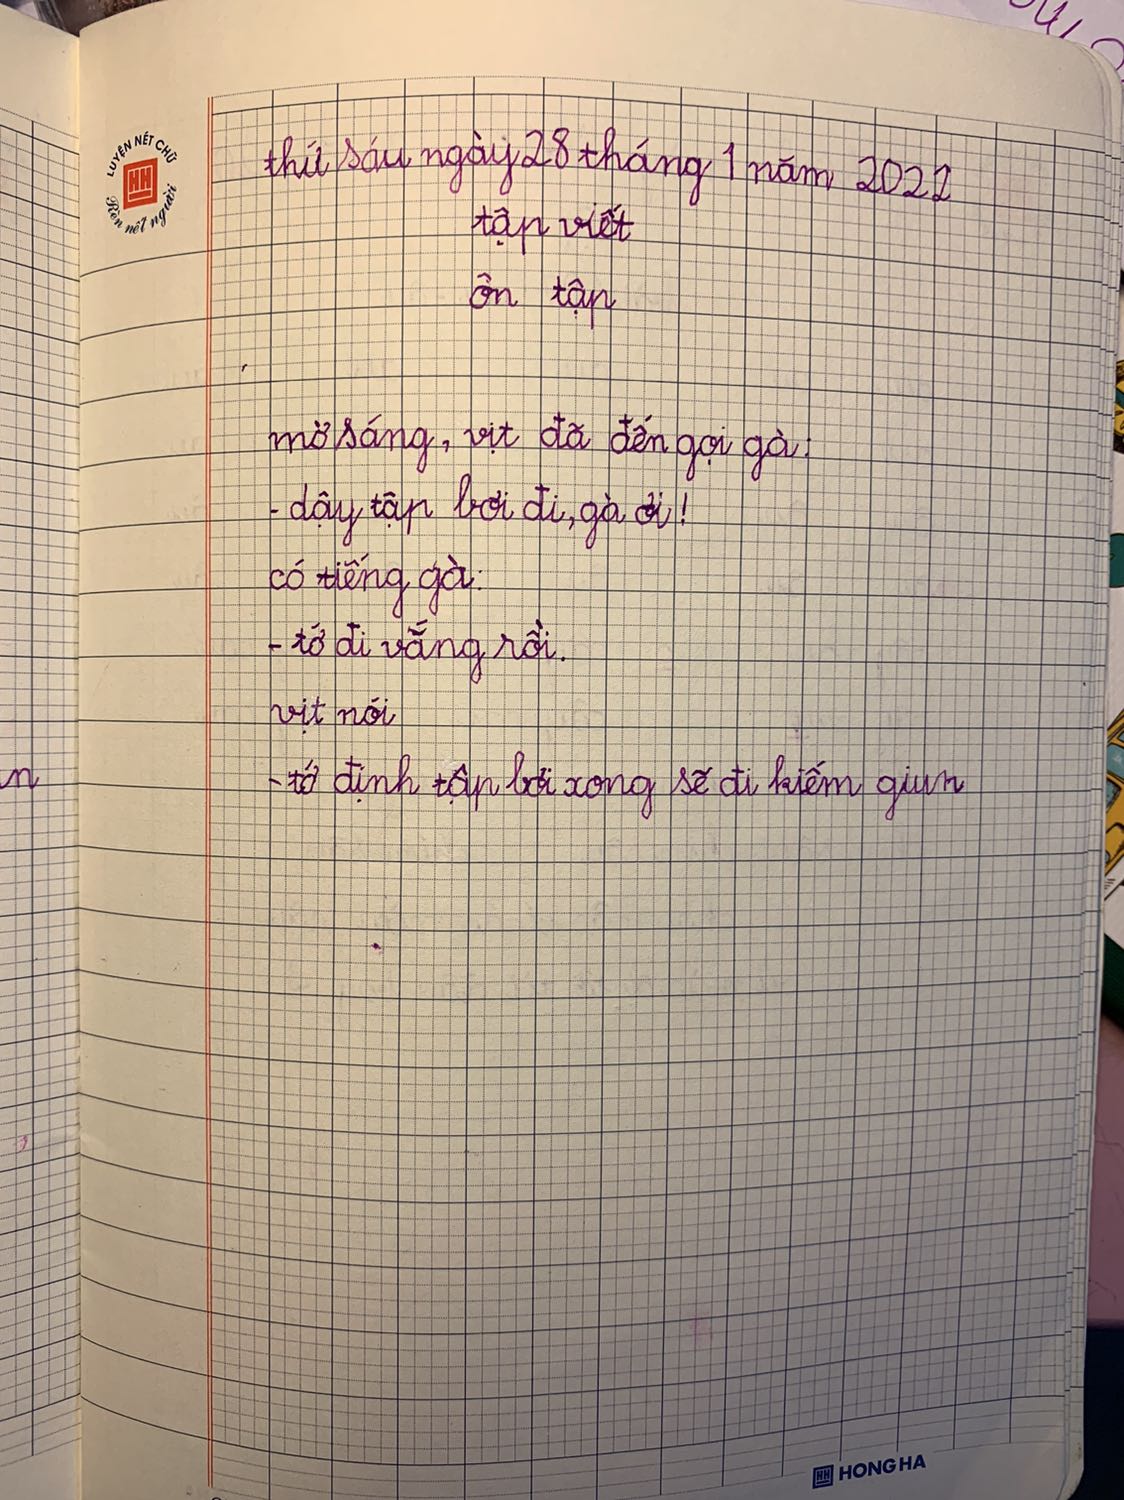 LUYỆN NÉT CHỮ
HH
Rèn nết người
thứ sáu ngày 28 tháng 1 năm 2022
tập viết
ôn tập
mờ sáng, vịt đã đến gọi gà:
- dậy tập bơi đi, gà ơi!
có tiếng gà:
- tớ đi vắng rồi.
vịt nói
- tớ định tập bơi xong sẽ đi kiếm giun
n
HH HONG HA